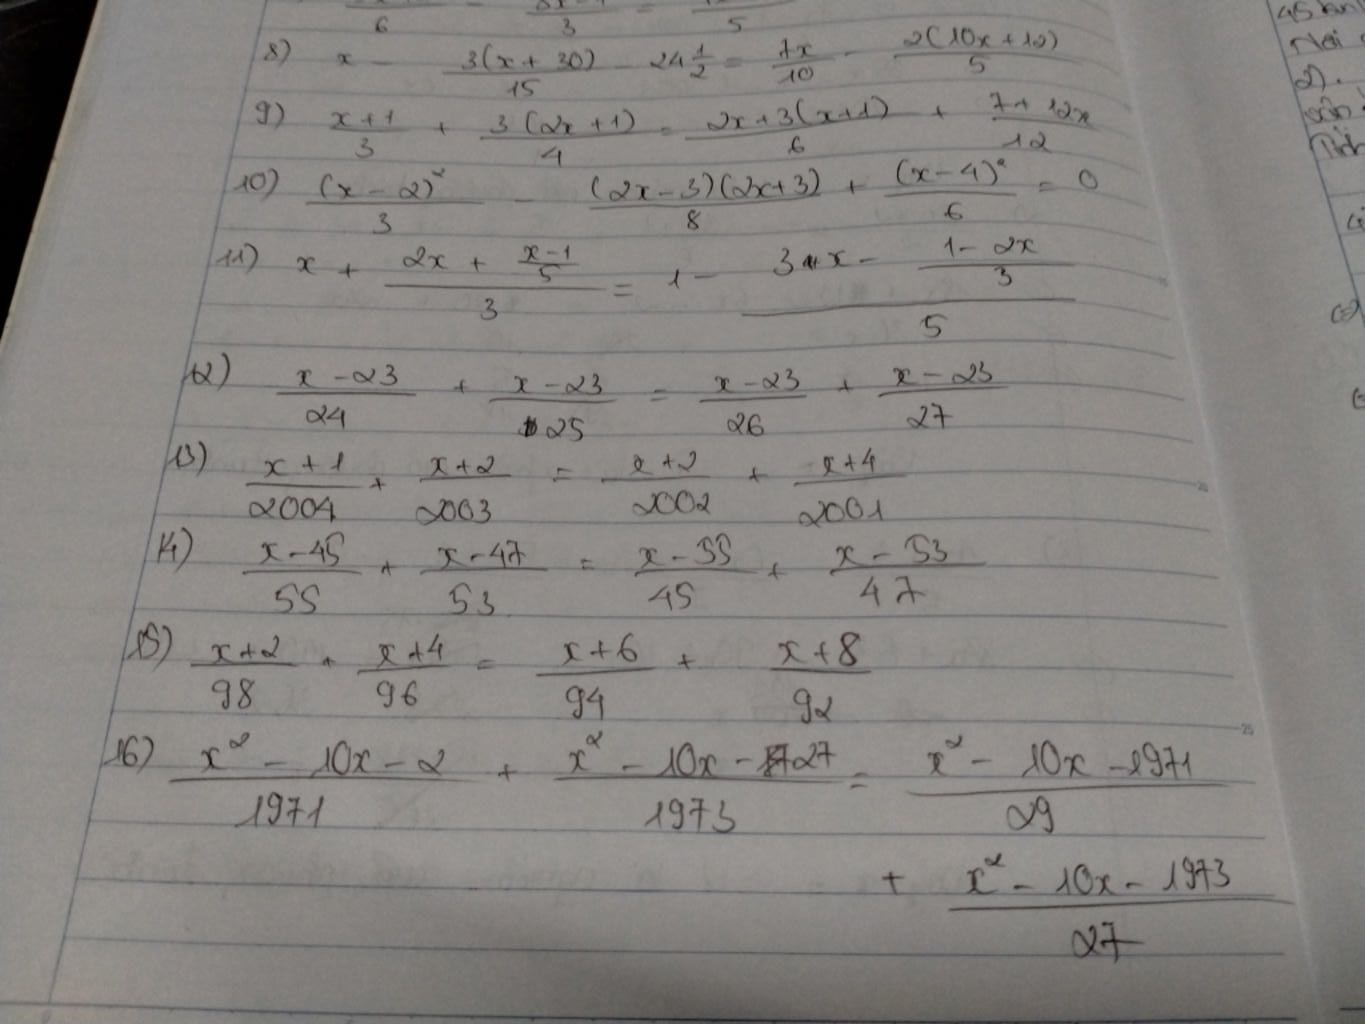 6 3 = 5
8) x - 3(x + 30)/15 - 24 1/2 = 7x/10 - 2(10x + 12)/5
9) x+1/3 + 3(2x+1)/4 = 2x+3(x+1)/6 + 7+12x/12
10) (x-2)²/3 - (2x-3)(2x+3)/8 + (x-4)²/6 = 0
11) x + (2x + (x-1)/5)/3 = 1 - (3x - (1-2x)/3)/5
12) x-23/24 + x-23/25 = x-23/26 + x-23/27
13) x+1/2004 + x+2/2003 = x+2/2002 + x+4/2001
14) x-45/55 + x-47/53 = x-55/45 + x-53/47
15) x+2/98 + x+4/96 = x+6/94 + x+8/92
16) x²-10x-2/1971 + x²-10x-27/1973 = x²-10x-1971/29
+ x²-10x-1973/27
2).